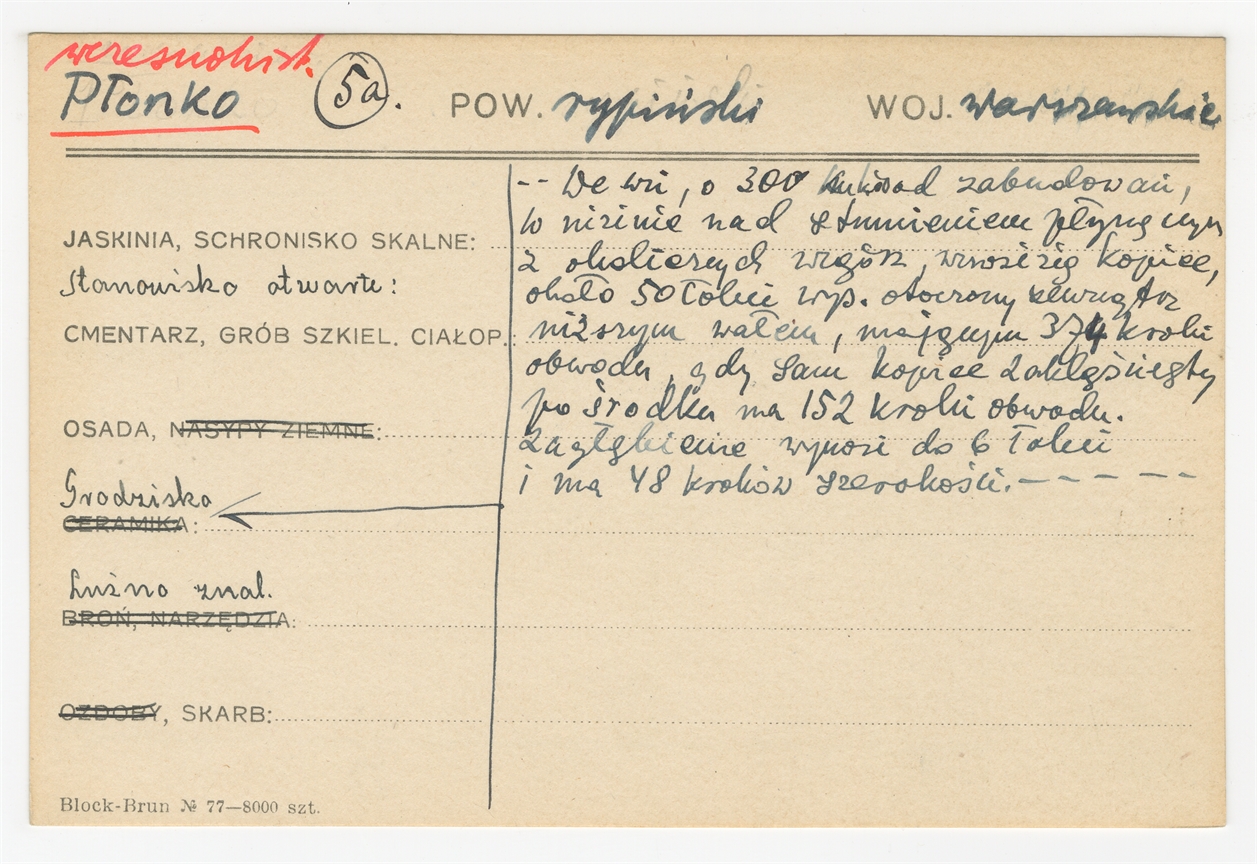 wczesnohist.
Płonko 5a. POW. rypiński WOJ. warszawskie
-- We wsi, o 300 od zabudowań,
w nizinie nad strumieniem płynącym
JASKINIA, SCHRONISKO SKALNE:
z okolicznych wzgórz, wznosi się kopiec,
Stanowisko otwarte:
około 50 łokci wys. otoczony zewnątrz
CMENTARZ, GRÓB SZKIEL. CIAŁOP.:
niższym wałem, mającym 374 kroki
obwodu, gdy sam kopiec zaklęśnięty
po środku ma 152 kroki obwodu.
OSADA, NASYPY ZIEMNE:
Zagłębienie wynosi do 6 łokci
i ma 48 kroków szerokości. - - - - -
Grodzisko
CERAMIKA:
Luźno znal.
BROŃ, NARZĘDZIA:
OZDOBY, SKARB:
Block-Brun № 77—8000 szt.